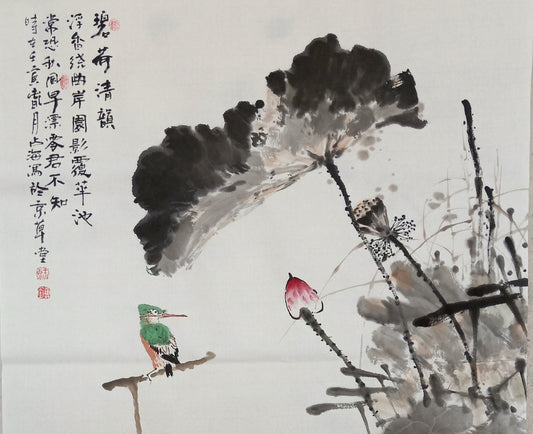 碧荷清韻
浮香绕曲岸圓影覆華池
常恐秋風早漂零君不知
時在壬寅月占海寫於京草堂